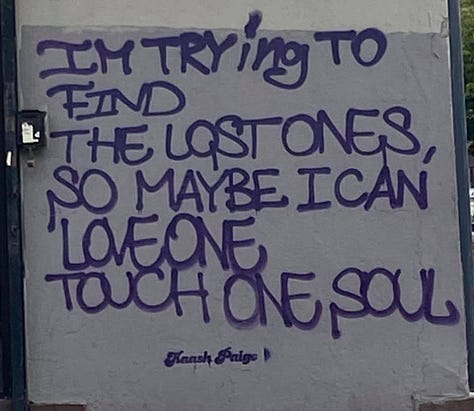 IM TRYing TO
FIND
THE LOST ONES,
SO MAYBE I CAN
LOVE ONE
TOUCH ONE SOUL
Kaash Paige